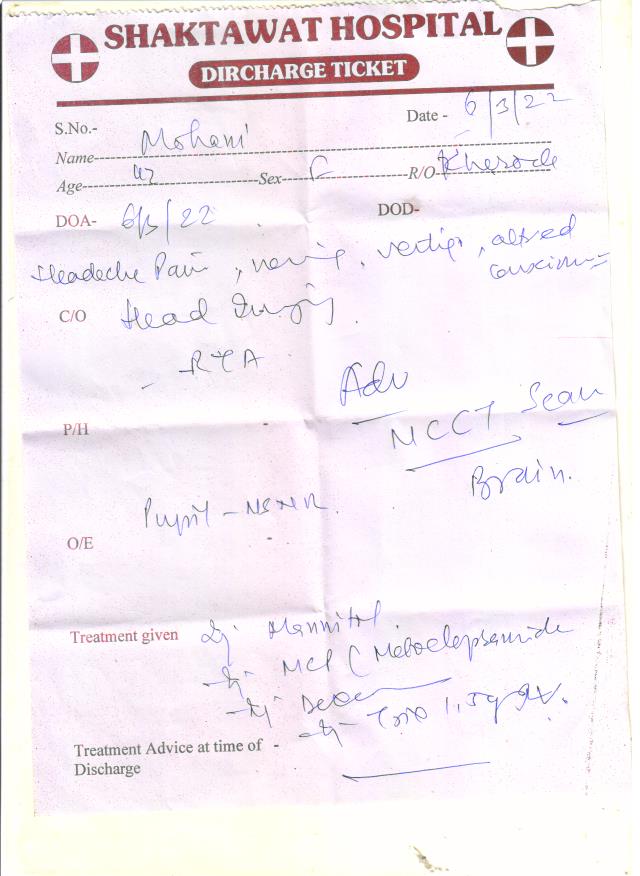 SHAKTAWAT HOSPITAL
DIRCHARGE TICKET
S.No.- Date - 6/3/22
Name- Mohani
Age- 42 Sex- F R/O- Kherode
DOA- 6/3/22 DOD-
Headeche Pain , , vertigo , altred
C/O Head Injury
- RTA
Adv
P/H - NCCT Scan
Brain.
Pupil - NSNR.
O/E -
Treatment given Inj Mannitol
- Inj MCP ( Metoclopramide
- Inj Dexa
- Inj 1.5g IV.
Treatment Advice at time of -
Discharge